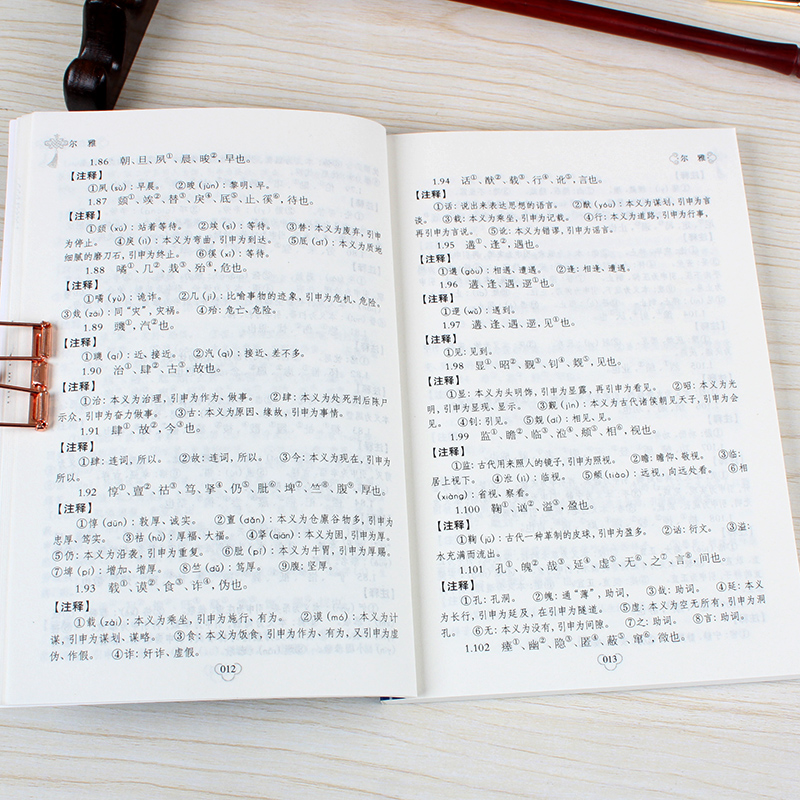 尔 雅
1.86 朝、旦、夙①、晨、晙②,早也。
【注释】
①夙(sù):早晨。 ②晙(jùn):黎明、早。
1.87 頠①、竢②、替③、戾④、厎⑤、止、徯⑥,待也。
【注释】
①(xū):站着等待。 ②竢(sì):等待。 ③替:本义为废弃,引申
为停止。 ④戾(lì):本义为弯曲,引申为到达。 ⑤厎(dǐ):本义为质地
细腻的磨刀石,引申为终止。 ⑥徯(xī):等待。
1.88 噊①、几②、烖③、殆④,危也。
【注释】
①噊(yù):诡诈。 ②几(jī):比喻事物的迹象,引申为危机、危险。
③烖(zāi):同“灾”,灾祸。 ④殆:危亡、危险。
1.89 ①,汽②也。
【注释】
①(qí):近、接近。 ②汽(qì):接近、差不多。
1.90 治①、肆②、古③,故也。
【注释】
①治:本义为治理,引申为作为、做事。 ②肆:本义为处死刑后陈尸
示众,引申为奋力做事。 ③古:本义为原因、缘故,引申为事情。
1.91 肆①、故②,今③也。
【注释】
①肆:连词,所以。 ②故:连词,所以。 ③今:本义为现在,引申为
所以。
1.92 惇①、亶②、祜③、笃、掔④、仍⑤、肶⑥、埤⑦、竺⑧、腹⑨,厚也。
【注释】
①惇(dūn):敦厚、诚实。 ②亶(dǎn):本义为仓廪谷物多,引申为
忠厚、笃实。 ③祜(hù):厚福、大福。 ④掔(qiān):本义为固,引申为厚。
⑤仍:本义为沿袭,引申为重复。 ⑥肶(pí):本义为牛胃,引申为厚赐。
⑦埤(pí):增加、增厚。 ⑧竺(dǔ):笃厚。 ⑨腹:坚厚。
1.93 载①、谟②、食③、诈④,伪也。
【注释】
①载(zài):本义为乘坐,引申为施行、有为。 ②谟(mó):本义为计
谋,引申为谋划、谋略。 ③食:本义为饭食,引申为作为、有为,又引申为虚
伪、作假。 ④诈:奸诈、虚假。
012
尔 雅
1.94 话①、猷②、载③、行④、讹⑤,言也。
【注释】
①话:说出来表达思想的语言。 ②猷(yóu):本义为谋划,引申为言
谈。 ③载:本义为乘坐,引申为记载。 ④行:本义为道路,引申为行事,
再引申为言说。 ⑤讹:本义为错谬,引申为谣言。
1.95 遘①、逢②,遇也。
【注释】
①遘(gòu):相遇、遭遇。 ②逢:相逢、遭遇。
1.96 遘、逢、遇,遻①也。
【注释】
①遻(wù):遇到。
1.97 遘、逢、遇、遻,见①也。
【注释】
①见:见到。
1.98 显①、昭②、觐③、钊④、觌⑤,见也。
【注释】
①显:本义为头明饰,引申为显露,再引申为看见。 ②昭:本义为光
明,引申为显现、显示。 ③觐(jìn):本义为古代诸侯朝见天子,引申为会
见。 ④钊:引见。 ⑤觌(dí):相见、见。
1.99 监①、瞻②、临③、涖④、頫⑤、相⑥,视也。
【注释】
①监:古代用来照人的镜子,引申为照视。 ②瞻:瞻仰、敬视。 ③临:
居上视下。 ④涖(lì):临视。 ⑤頫(tiào):远视,向远处看。 ⑥相
(xiàng):省视、察看。
1.100 鞠①、讻②、溢③,盈也。
【注释】
①鞠(jū):古代一种革制的皮球,引申为盈多。 ②讻:衍文。 ③溢:
水充满而流出。
1.101 孔①、魄②、哉③、延④、虚⑤、无⑥、之⑦、言⑧,间也。
【注释】
①孔:孔洞。 ②魄:通“薄”,助词。 ③哉:助词。 ④延:本义
为长行,引申为延及,在引申为隧道。 ⑤虚:本义为空无所有,引申为洞
孔。 ⑥无:本义为没有,引申为间隙。 ⑦之:助词。 ⑧言:助词。
1.102 瘗①、幽②、隐③、匿④、蔽⑤、窜⑥,微也。
013